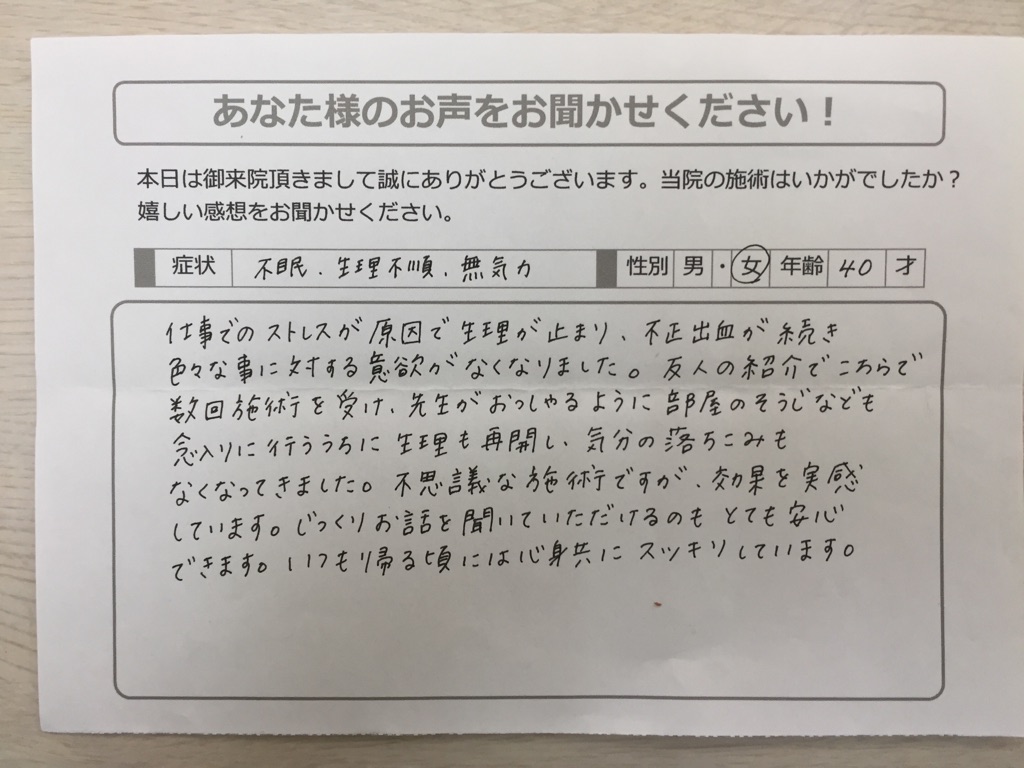 あなた様のお声をお聞かせください！
本日は御来院頂きまして誠にありがとうございます。当院の施術はいかがでしたか？
嬉しい感想をお聞かせください。
症状 不眠、生理不順、無気力 性別 男・女 年齢 40 才
仕事でのストレスが原因で生理が止まり、不正出血が続き
色々な事に対する意欲がなくなりました。友人の紹介でこちらで
数回施術を受け、先生がおっしゃるように部屋のそうじなども
念入りに行ううちに生理も再開し、気分の落ちこみも
なくなってきました。不思議な施術ですが、効果を実感
しています。じっくりお話を聞いていただけるのもとても安心
できます。いつも帰る頃には心身共にスッキリしています。